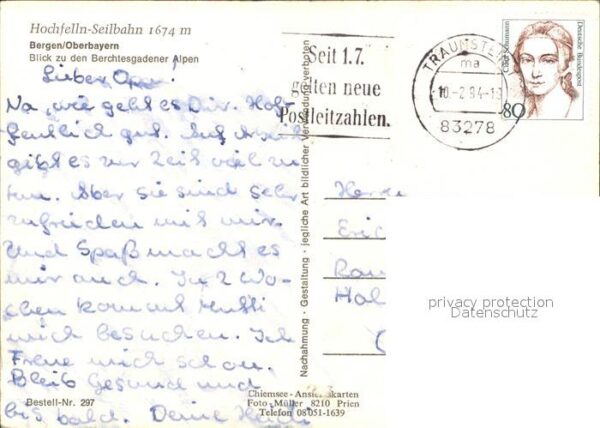 Hochfelln-Seilbahn 1674 m
Bergen/Oberbayern
Blick zu den Berchtesgadener Alpen
Lieber Opa!
Na, wie geht es Dir. Hof-
fentlich gut. Auf Arbeit
gibt es zur Zeit viel zu
tun. Aber sie sind sehr
zufrieden mit mir.
Und Spaß macht es
mir auch. In 2 Wo-
chen kommt Mutti
mich besuchen. Ich
Freue mich schon.
Bleib Gesund und
bis bald. Deine Heidi
Bestell-Nr. 297
Nachahmung - Gestaltung - jegliche Art bildlicher Verwendung verboten
Chiemsee-Ansichtskarten
Foto-Müller 8210 Prien
Telefon 08051-1639
Seit 1.7.
gelten neue
Postleitzahlen.
TRAUNSTEIN
ma
10-2.94-1
83278
Clara Schumann
Deutsche Bundespost
80
Herr
Eric
Rau
Hol
privacy protection
Datenschutz